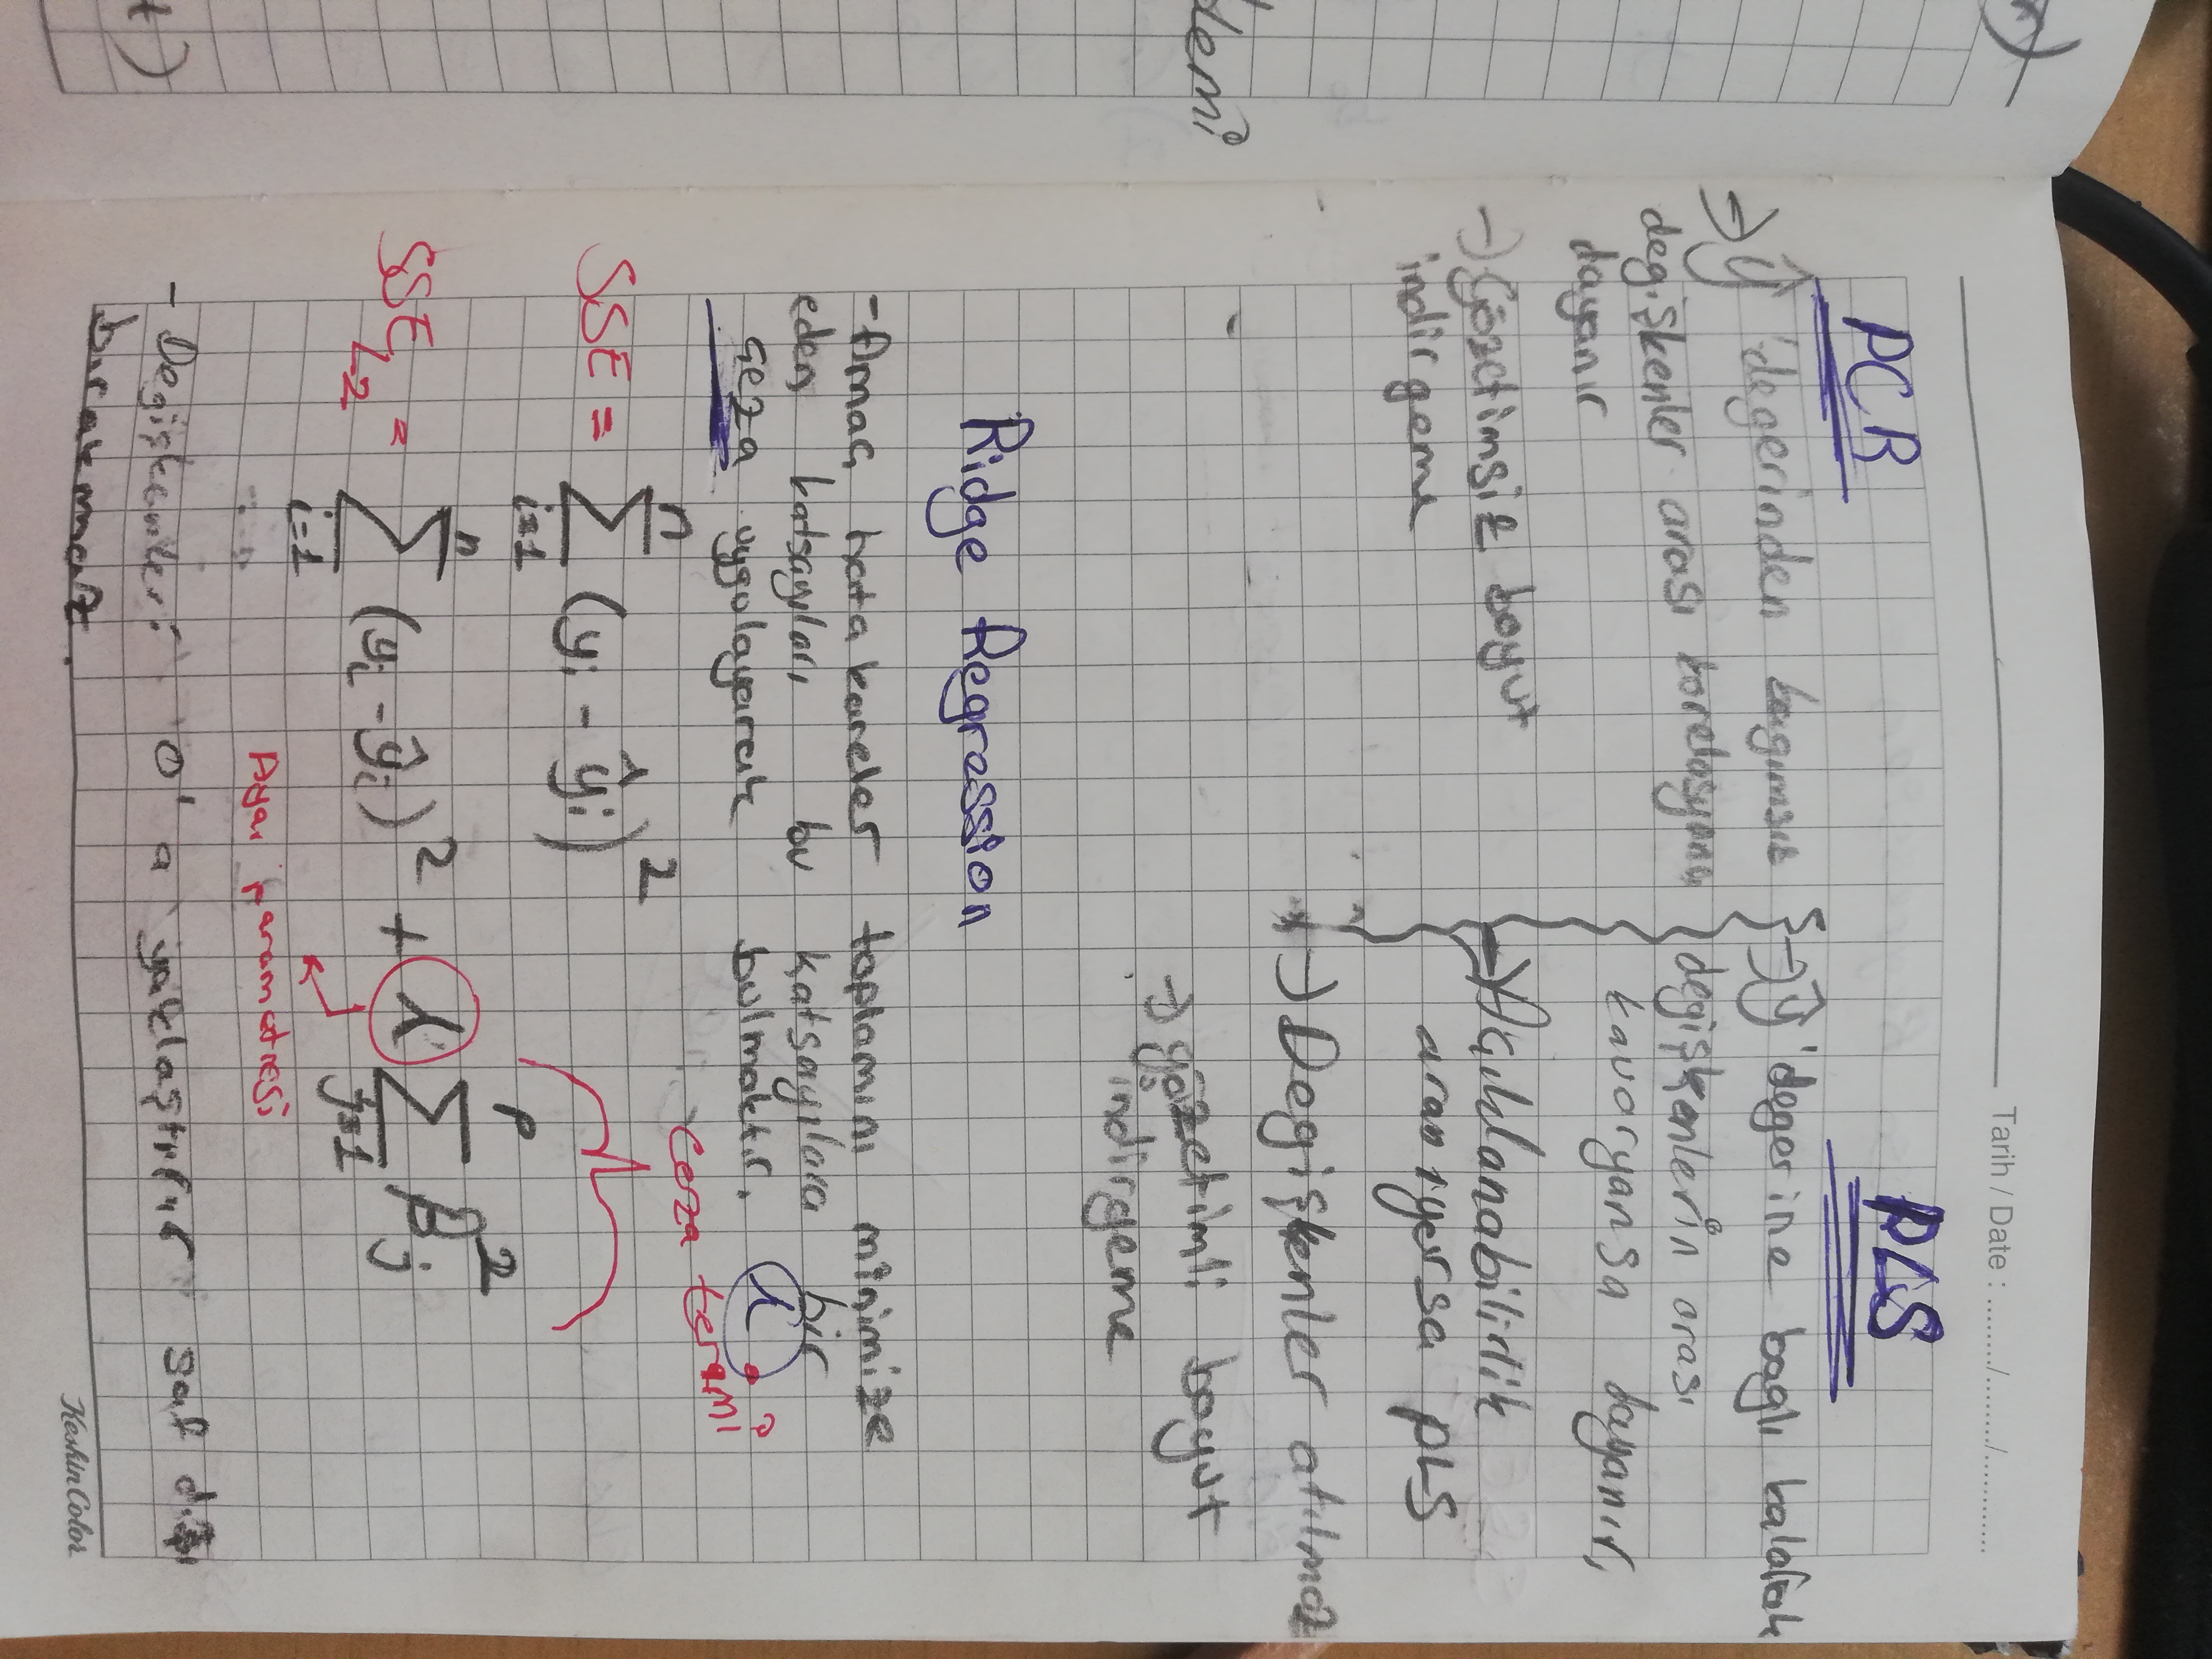 Tarih / Date : ......../......../............
PCR
ŷ 'değerinden bağımsız
değişkenler arası korelasyona
dayanır
→ Gözetimsiz boyut
indirgeme
PLS
→ ŷ 'değerine bağlı kalarak
değişkenlerin arası
kavoryansa dayanır,
→ Açıklanabilirlik
aranıyorsa PLS
→ Değişkenler atılmaz
→ gözetimli boyut
indirgeme
Ridge Regression
- Amaç hata kareler toplamını minimize
eden katsayıları, bu katsayılara bir
ceza uygulayarak bulmaktır. λ
ceza terimi
SSE = n ∑ i=1 (yi - ŷi)²
SSE L2 = n ∑ i=1 (yi - ŷi)² + λ p ∑ j=1 βj²
Ayar parametresi
- Değişkenleri 0' a yaklaştırır saf dışı
bırakmaz.
KeskinColor
lemi
t)